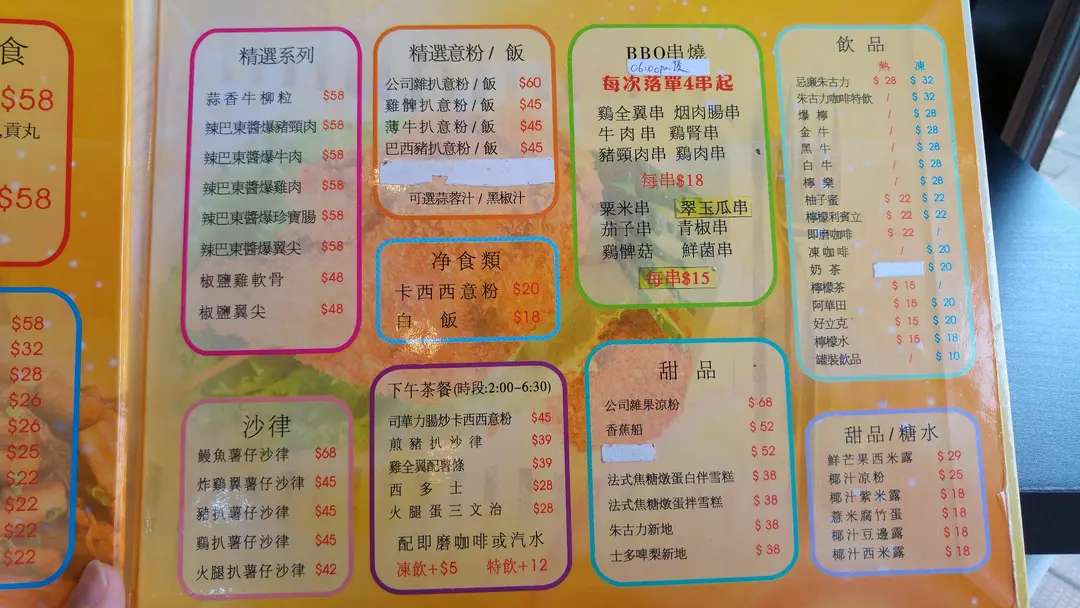 食
$58
,貢丸
$58
$58
$32
$28
$26
$26
$25
$22
$22
$22
$22
精選系列
蒜香牛柳粒 $58
辣巴東醬爆豬頸肉 $58
辣巴東醬爆牛肉 $58
辣巴東醬爆雞肉 $58
辣巴東醬爆珍寶腸 $58
辣巴東醬爆翼尖 $58
椒鹽雞軟骨 $48
椒鹽翼尖 $48
沙律
鰻魚薯仔沙律 $68
炸鷄翼薯仔沙律 $45
豬扒薯仔沙律 $45
鷄扒薯仔沙律 $45
火腿扒薯仔沙律 $42
精選意粉 / 飯
公司雜扒意粉 / 飯 $60
雞髀扒意粉 / 飯 $45
薄牛扒意粉 / 飯 $45
巴西豬扒意粉 / 飯 $45
可選蒜蓉汁 / 黑椒汁
净食類
卡西西意粉 $20
白 飯 $18
下午茶餐(時段:2:00-6:30)
司華力腸炒卡西西意粉 $45
煎豬扒沙律 $39
雞全翼配薯條 $39
西多士 $28
火腿蛋三文治 $28
配即磨咖啡或汽水
凍飲+$5 特飲+12
BBQ串燒
06:00pm後
每次落單4串起
鷄全翼串 烟肉腸串
牛肉串 鷄腎串
豬頸肉串 鷄肉串
每串$18
粟米串 翠玉瓜串
茄子串 青椒串
鷄髀菇 鮮菌串
每串$15
甜 品
公司雜果涼粉 $ 68
香蕉船 $ 52
$ 52
法式焦糖燉蛋白伴雪糕 $ 38
法式焦糖燉蛋拌雪糕 $ 38
朱古力新地 $ 38
士多啤梨新地 $ 38
飲 品
熱 凍
忌廉朱古力 $ 28 $ 32
朱古力咖啡特飲 / $ 32
爆檸 / $ 28
金牛 / $ 28
黑牛 / $ 28
白牛 / $ 28
檸樂 / $ 28
柚子蜜 $ 22 $ 22
檸檬利賓立 $ 22 $ 22
即磨咖啡 $ 22 /
凍咖啡 / $ 20
奶茶 $ 20
檸檬茶 $ 15 /
阿華田 $ 15 $ 20
好立克 $ 15 $ 20
檸檬水 $ 15 $ 18
罐裝飲品 / $ 10
甜品/糖水
鮮芒果西米露 $ 29
椰汁凉粉 $ 25
椰汁紫米露 $ 18
薏米腐竹蛋 $ 18
椰汁豆邊露 $ 18
椰汁西米露 $ 18